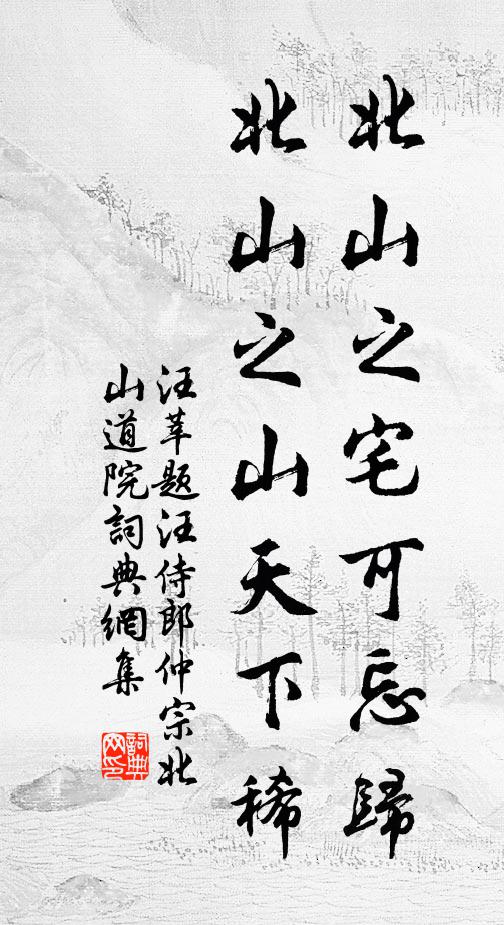 北山之宅可忘歸
北山之山天下稀
汪莘題汪侍郎仲宗北
山道院詞典網集
詞典
网印